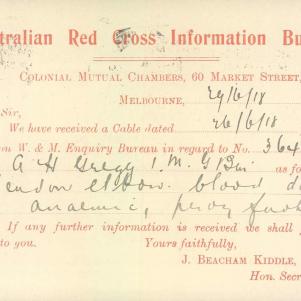 tralian Red Cross Information Bu
COLONIAL MUTUAL CHAMBERS, 60 MARKET STREET,
MELBOURNE, 29/6/18
Sir,
We have received a Cable dated 26/6/18
on W. & M. Enquiry Bureau in regard to No. 364
A H Gregg 1. M. G. Bn as fo
elbow. blood
anaemic,
If any further information is received we shall
to you. Yours faithfully,
J. BEACHAM KIDDLE,
Hon. Secr